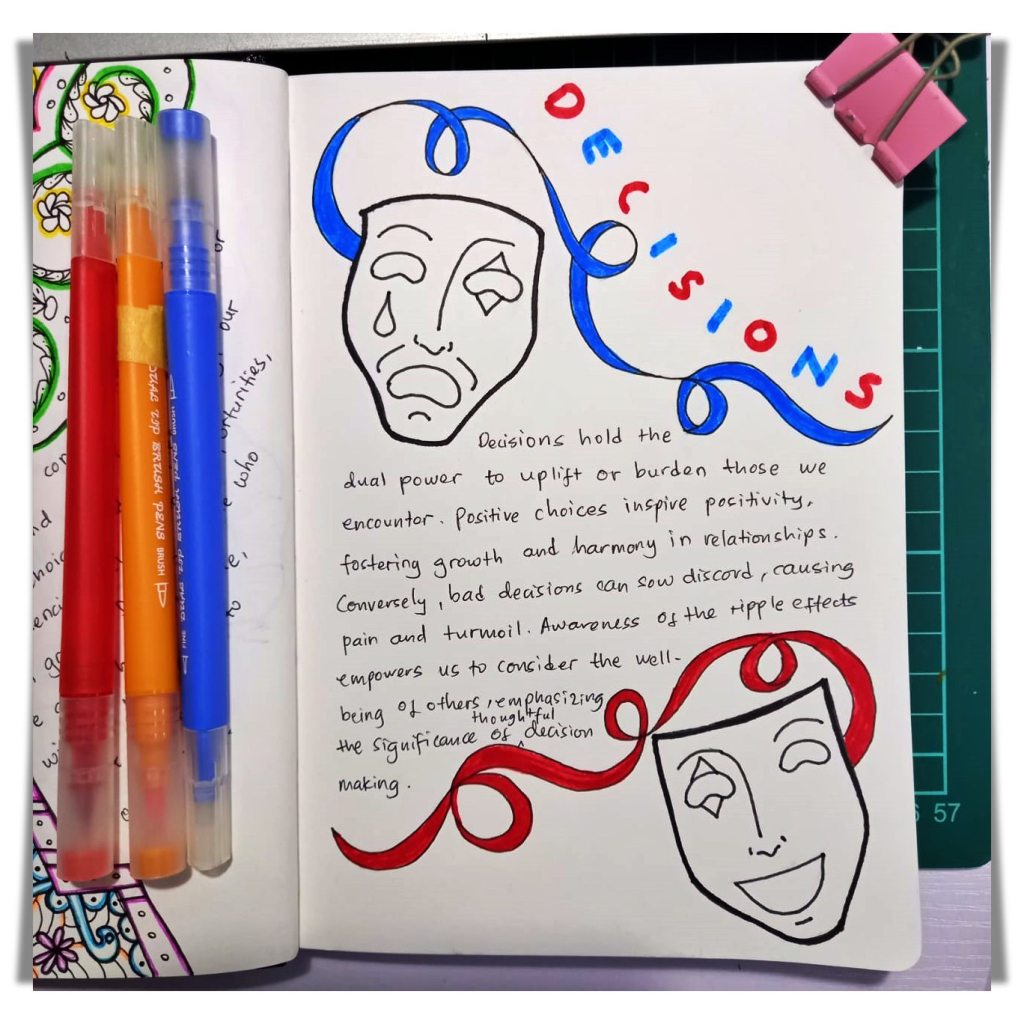 DECISIONS
Decisions hold the
dual power to uplift or burden those we
encountor. Positive choices inspire positivity,
fostering growth and harmony in relationships.
Conversely, bad decisions can sow discord, causing
pain and turmoil. Awareness of the ripple effects
empowers us to consider the well-
being of others, emphasizing
thoughtful
the significance of ^ decision
making.
or
our
who
to
BRUSH PENS BRUSH
FINE
57